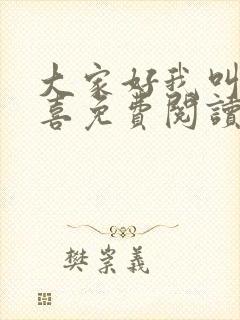 大家好我叫
喜免費閱讀
樊崇義